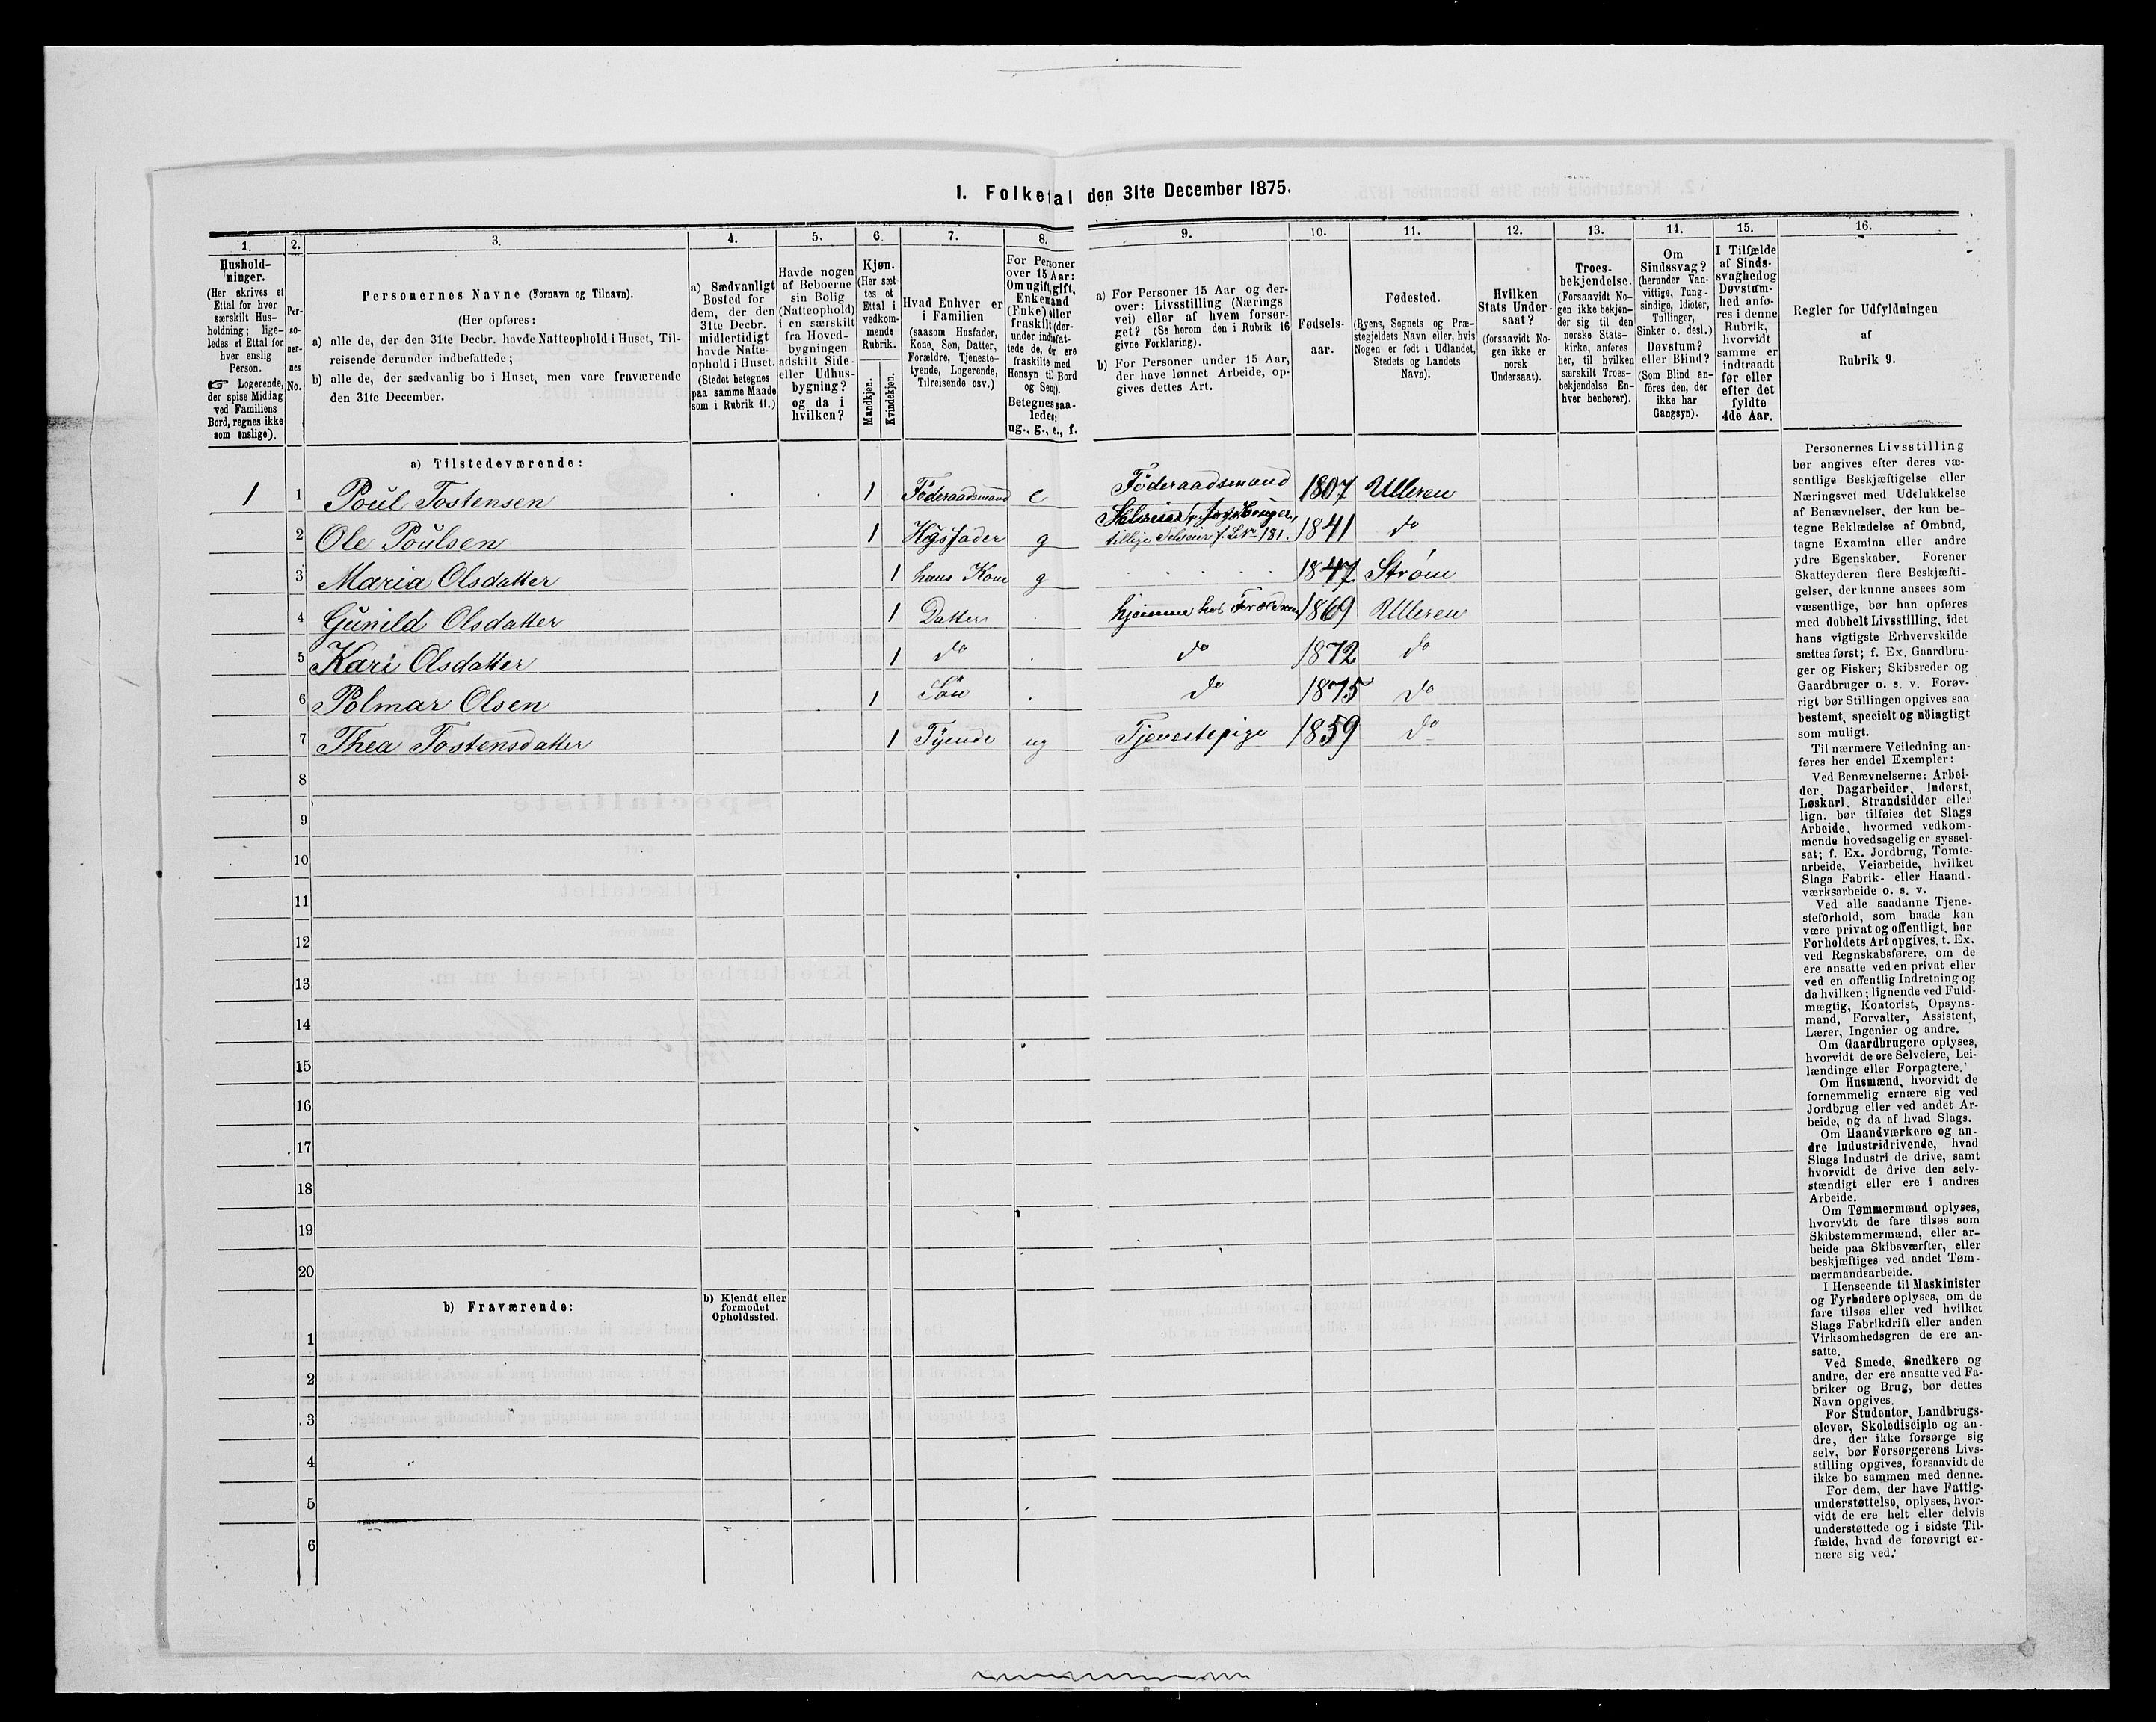 1. Folketal den 31te December 1875.
1.
Hushold-
ninger.
(Her skrives et
Ettal for hver
særskilt Hus-
holdning; lige-
ledes et Ettal for
hver enslig
Person.
☞ Logerende,
der spise Middag
ved Familiens
Bord, regnes ikke
som enslige).
2.
Per-
so-
ner-
nes
No.
3.
Personernes Navne (Fornavn og Tilnavn).
(Her opføres:
a) alle de, der den 31te Decbr. havde Natteophold i Huset, Til-
reisende derunder indbefattede;
b) alle de, der sædvanlig bo i Huset, men vare fraværende
den 31te December.
4.
a) Sædvanligt
Bosted for
dem, der den
31te Decbr.
midlertidigt
havde Natte-
ophold i Huset.
(Stedet betegnes
paa samme Maade
som i Rubrik 11.)
5.
Havde nogen
af Beboerne
sin Bolig
(Natteophold)
i en særskilt
fra Hoved-
bygningen
adskilt Side-
eller Udhus-
bygning?
og da i
hvilken?
6.
Kjøn.
(Her sæt
tes et
Ettal i
vedkom-
mende
Rubrik.
Mandkjøn.
Kvindekjøn.
7.
Hvad Enhver er
i Familien
(saasom Husfader,
Kone, Søn, Datter,
Forældre, Tjeneste-
tyende, Logerende,
Tilreisende osv.)
8.
For Personer
over 15 Aar:
Om ugift, gift,
Enkemand
(Enke) eller
fraskilt (der-
under indbefat-
tede de, der ere
fraskilte med
Hensyn til Bord
og Seng).
Betegnes saa-
ledes:
ug., g., e., f.
9.
a) For Personer 15 Aar og der-
over: Livsstilling (Nærings
vei) eller af hvem forsør-
get? (Se herom den i Rubrik 16
givne Forklaring).
b) For Personer under 15 Aar,
der have lønnet Arbeide, op-
gives dettes Art.
10.
Fødsels-
aar.
11.
Fødested.
(Byens, Sognets og Præ-
stegjeldets Navn eller, hvis
Nogen er født i Udlandet,
Stedets og Landets
Navn).
12.
Hvilken
Stats Under-
saat?
(forsaavidt No-
gen ikke er
norsk
Undersaat).
13.
Troes-
bekjendelse.
(Forsaavidt No-
gen ikke bekjen-
der sig til den
norske Stats-
kirke, anføres
her, til hvilken
særskilt Troes-
bekjendelse En-
hver henhører).
14.
Om
Sindssvag?
(herunder Van-
vittige, Tung-
sindige, Idioter,
Tullinger,
Sinker o. desl.)
Døvstum?
eller Blind?
(Som Blind an-
føres den, der
ikke har
Gangsyn).
15.
I Tilfælde
af Sinds-
svaghed og
Døvstum-
hed anfø-
res i denne
Rubrik,
hvorvidt
samme er
indtraadt
før eller
efter det
fyldte
4de Aar.
16.
Regler for Udfyldningen
af
Rubrik 9.
a) Tilstedeværende:
1 1 Poul Tostensen 1 Föderaadsmand e Föderaadsmand 1807 Ulleren
2 Ole Poulsen 1 Husfader g tillige Selveier f. L.No 181. 1841 do
3 Maria Olsdatter 1 hans Kone g 1847 Ström
4 Gunild Olsdatter 1 Datter hjemme hos Forældrene 1869 Ulleren
5 Kari Olsdatter 1 do do 1872 do
6 Polmar Olsen 1 Sön do 1875 do
7 Thea Tostensdatter 1 Tyende ug Tjenestepige 1859 do
8
9
10
11
12
13
14
15
16
17
18
19
20
b) Fraværende:
b) Kjendt eller
formodet
Opholdssted.
1
2
3
4
5
6
Personernes Livsstilling
bør angives efter deres væ-
sentlige Beskjæftigelse eller
Næringsvei med Udelukkelse
af Benævnelser, der kun be-
tegne Beklædelse af Ombud,
tagne Examina eller andre
ydre Egenskaber. Forener
Skatteyderen flere Beskjæfti-
gelser, der kunne ansees som
væsentlige, bør han opføres
med dobbelt Livsstilling, idet
hans vigtigste Erhvervskilde
sættes først; f. Ex. Gaardbru-
ger og Fisker; Skibsreder og
Gaardbruger o. s. v. Forøv-
rigt bør Stillingen opgives saa
bestemt, specielt og nöiagtigt
som muligt.
Til nærmere Veiledning an-
føres her endel Exempler:
Ved Benævnelserne: Arbei-
der, Dagarbeider, Inderst,
Løskarl, Strandsidder eller
lign. bør tilføies det Slags
Arbeide, hvormed vedkom-
mende hovedsagelig er syssel-
sat; f. Ex. Jordbrug, Tomte-
arbeide, Veiarbeide, hvilket
Slags Fabrik- eller Haand-
værksarbeide o. s. v.
Ved alle saadanne Tjene-
steforhold, som baade kan
være privat og offentligt, bør
Forholdets Art opgives, t. Ex.
ved Regnskabsførere, om de
ere ansatte ved en privat eller
ved en offentlig Indretning og
da hvilken; lignende ved Fuld-
mægtig, Kontorist, Opsyns-
mand, Forvalter, Assistent,
Lærer, Ingeniør og andre.
Om Gaardbrugere oplyses,
hvorvidt de ere Selveiere, Lei-
lændinge eller Forpagtere.
Om Husmænd, hvorvidt de
fornemmelig ernære sig ved
Jordbrug eller ved andet Ar-
beide, og da af hvad Slags.
Om Haandværkere og an-
dre Industridrivende, hvad
Slags Industri de drive, samt
hvorvidt de drive den selv-
stændigt eller ere i andres
Arbeide.
Om Tømmermænd oplyses,
hvorvidt de fare tilsøs som
Skibstømmermænd, eller ar-
beide paa Skibsværfter, eller
beskjæftiges ved andet Tøm-
mermandsarbeide.
I Henseende til Maskinister
og Fyrbødere oplyses, om de
fare tilsøs eller ved hvilket
Slags Fabrikdrift eller anden
Virksomhedsgren de ere an-
satte.
Ved Smede, Snedkere og
andre, der ere ansatte ved Fa-
briker og Brug, bør dettes
Navn opgives.
For Studenter, Landbrugs-
elever, Skoledisciple og an-
dre, der ikke forsørge sig
selv, bør Forsørgerens Livs-
stilling opgives, forsaavidt de
ikke bo sammen med denne.
For dem, der have Fattig-
understøttelse, oplyses, hvor-
vidt de ere helt eller delvis
understøttede og i sidste Til-
fælde, hvad de forøvrigt er-
nære sig ved.